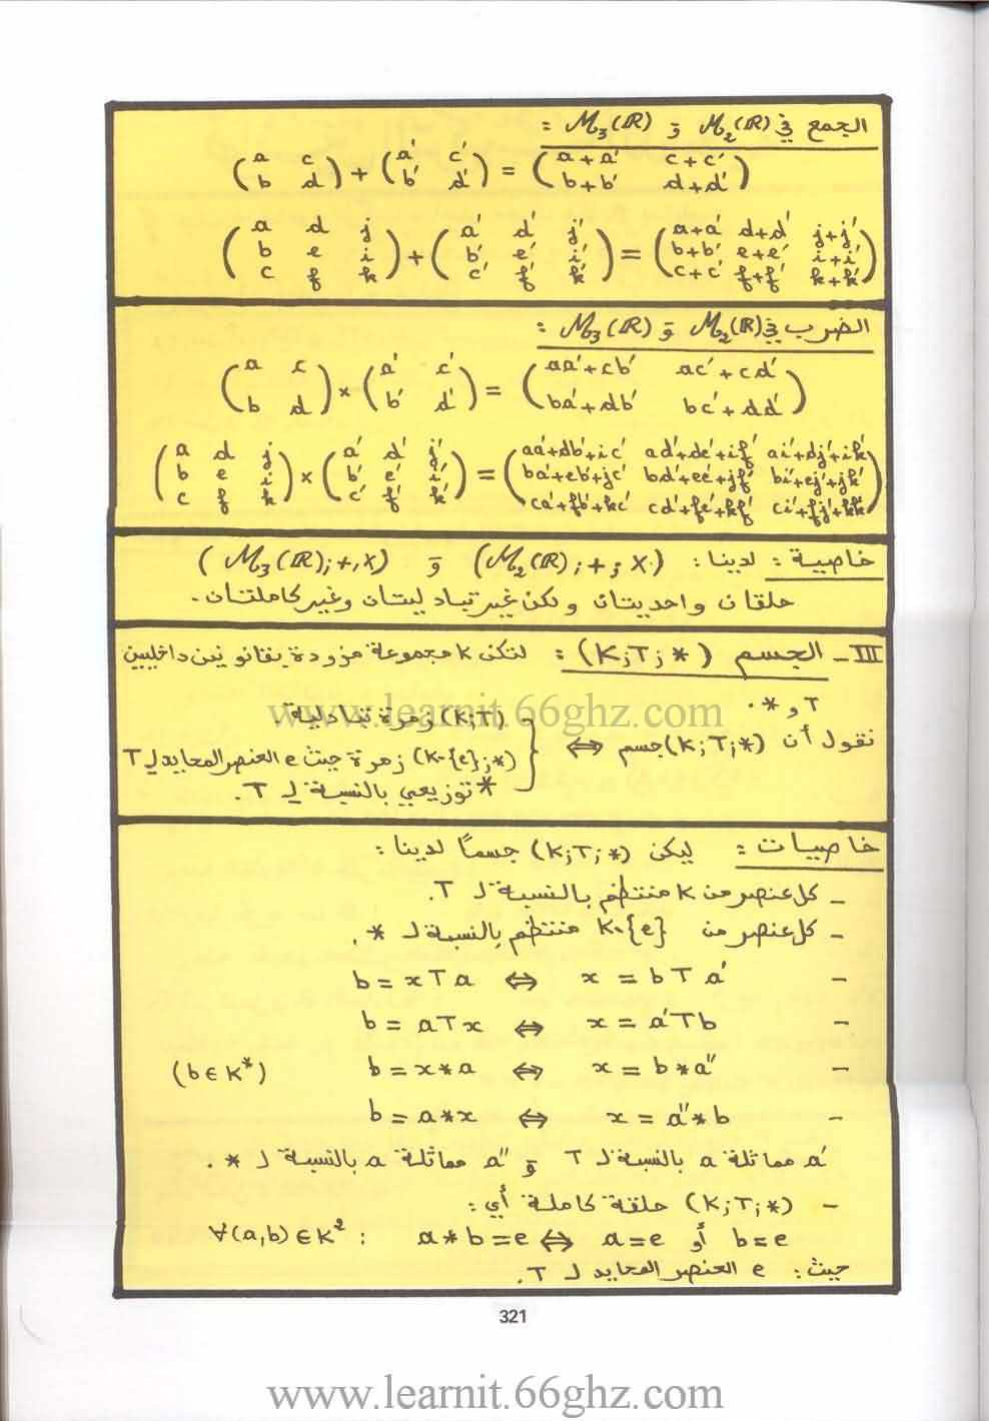 الجمع في M₂(ℝ) و M₃(ℝ) :
(a c ; b d) + (a' c' ; b' d') = (a+a' c+c' ; b+b' d+d')
(a d j ; b e i ; c f k) + (a' d' j' ; b' e' i' ; c' f' k') = (a+a' d+d' j+j' ; b+b' e+e' i+i' ; c+c' f+f' k+k')
الضرب في M₂(ℝ) و M₃(ℝ) :
(a c ; b d) × (a' c' ; b' d') = (aa'+cb' ac'+cd' ; ba'+db' bc'+dd')
(a d j ; b e i ; c f k) × (a' d' j' ; b' e' i' ; c' f' k') = (aa'+db'+ic' ad'+de'+if' ai'+dj'+ik' ; ba'+eb'+jc' bd'+ee'+jf' bi'+ej'+jk' ; ca'+fb'+kc' cd'+fe'+kf' ci'+fj'+kk')
خاصية : لدينا : (M₂(ℝ) ; + ; ×) و (M₃(ℝ) ; + , ×)
حلقتان واحديتان ولكن غير تبادليتان وغير كاملتتان.
III - الجسم (K;T;*) : لتكن K مجموعة مزودة بقانونين داخليين
T و *.
نقول أن (K;T;*) جسم ⇔ { (K;T) زمرة تبادلية.
(K-{e};*) زمرة حيث e العنصر المحايد لـ T
* توزيعي بالنسبة لـ T.
خاصيات : ليكن (K;T;*) جسمًا لدينا :
- كل عنصر من K منتظم بالنسبة لـ T.
- كل عنصر من K-{e} منتظم بالنسبة لـ *.
- b = x T a ⇔ x = b T a'
- b = a T x ⇔ x = a' T b
- b = x * a ⇔ x = b * a'' (b ∈ K*)
- b = a * x ⇔ x = a'' * b
a' مماثلة a بالنسبة لـ T و a'' مماثلة a بالنسبة لـ *.
- (K;T;*) حلقة كاملة أي :
∀(a,b) ∈ K² : a * b = e ⇔ a = e أو b = e
حيث : e العنصر المحايد لـ T.
321
www.learnit.66ghz.com
www.learnit.66ghz.com